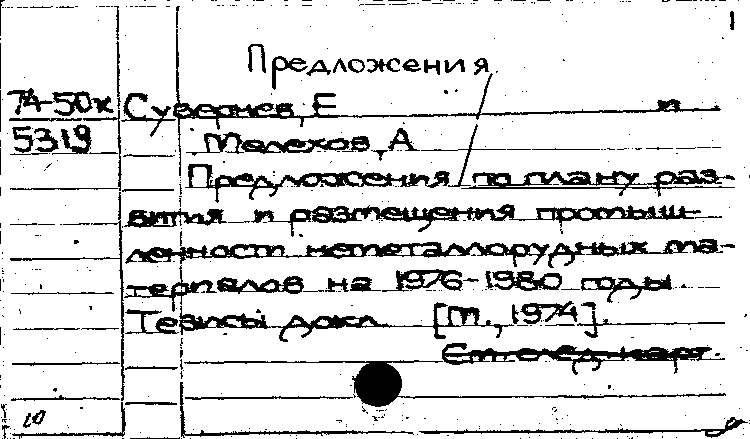 1
Предложения
74-50к Суворнев, Е и
5319 Малехов, А
Предложения / по плану раз-
вития и размещения промыш-
ленности неметаллорудных ма-
териалов на 1976-1980 годы.
Тезисы докл. [М., 1974].
См. след. карт.
10